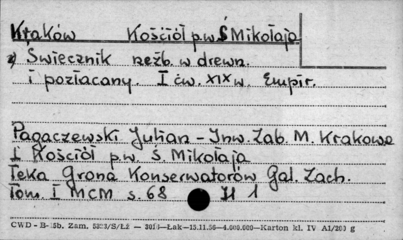 Kraków Kościół p.w. Ś Mikołaja
Świecznik rzeźb. w drewn.
i pozłacany. I ćw. XIX w. Empir.
Pagaczewski Julian - Inw. Zab. M. Krakowa
I Kościół p.w. Ś. Mikołaja
Teka Grona Konserwatorów Gal. Zach.
Tom. I MCM s. 68 II 1
CWD - Zam. Łak—13.11.56—4.000.000—Karton kl. IV A1/200 g